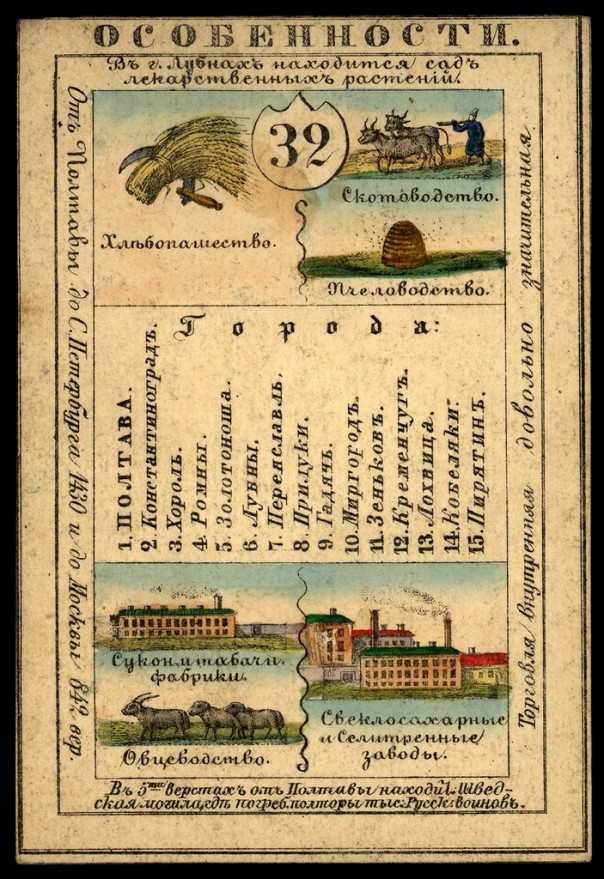 ОСОБЕННОСТИ.
Въ г. Лубнахъ находится садъ
лекарственныхъ растеній.
Отъ Полтавы до С.Петербурга 1430 и до Москвы 842 вер.
32
Скотоводство.
Хлѣбопашество.
Пчеловодство.
Города:
1. ПОЛТАВА.
2. Константиноградъ.
3. Хороль.
4. Ромны.
5. Золотоноша.
6. Лубны.
7. Переяславль.
8. Прилуки.
9. Гадячь.
10. Миргородъ.
11. Зеньковъ.
12. Кременчугъ.
13. Лохвица.
14. Кобеляки.
15. Пирятин.
Торговля внутренняя довольно значительная
Сукон. и табачн.
фабрики.
Овцеводство.
Свеклосахарные
и Селитренные
заводы.
Въ 5ти верстахъ отъ Полтавы находит. Швед-
ская могила, гдѣ погреб. полторы тыс. Русск. воиновъ.